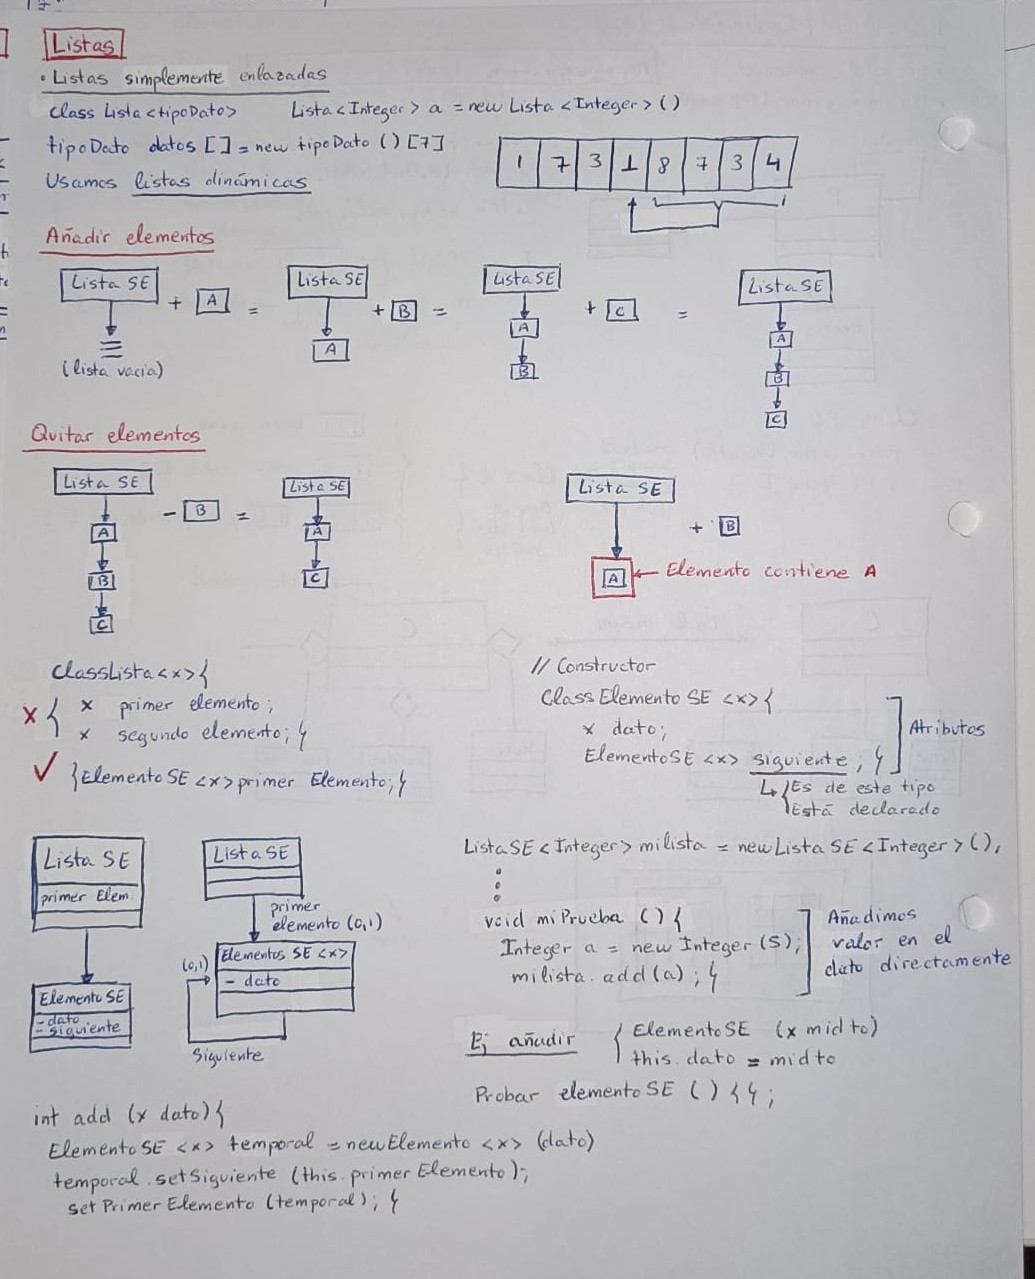 Listas
• Listas simplemente enlazadas
Class Lista <tipoDato>   Lista <Integer> a = new Lista <Integer> ()
tipoDato datos [] = new tipoDato () [7]
1 7 3 1 8 7 3 4
Usamos listas dinámicas
Añadir elementos
Lista SE + A = Lista SE + B = Lista SE + C = Lista SE
A
A
B
A
B
C
(lista vacia)
Quitar elementos
Lista SE - B = Lista SE
A
B
C
A
C
Lista SE + B
A ← Elemento contiene A
Class Lista <x> {
x { x primer elemento;
x segundo elemento; }
✓ {Elemento SE <x> primer Elemento; }
// Constructor
Class Elemento SE <x> {
x dato;
Elemento SE <x> siguiente ; }
Atributos
↳ { Es de este tipo
Está declarado
Lista SE
primer Elem.
Elemento SE
- dato
- siguiente
Lista SE
primer
elemento (0,1)
Elementos SE <x>
- dato
(0,1)
Siguiente
Lista SE <Integer> milista = new Lista SE <Integer> (),
void mi Prueba () {
Integer a = new Integer (5);
milista. add (a) ; }
Añadimos
valor en el
dato directamente
Ej añadir { Elemento SE (x mid to)
this. dato = mid to
Probar elemento SE () { } ;
int add (x dato) {
Elemento SE <x> temporal = new Elemento <x> (dato)
temporal. setSiguiente (this. primer Elemento);
set Primer Elemento (temporal); }